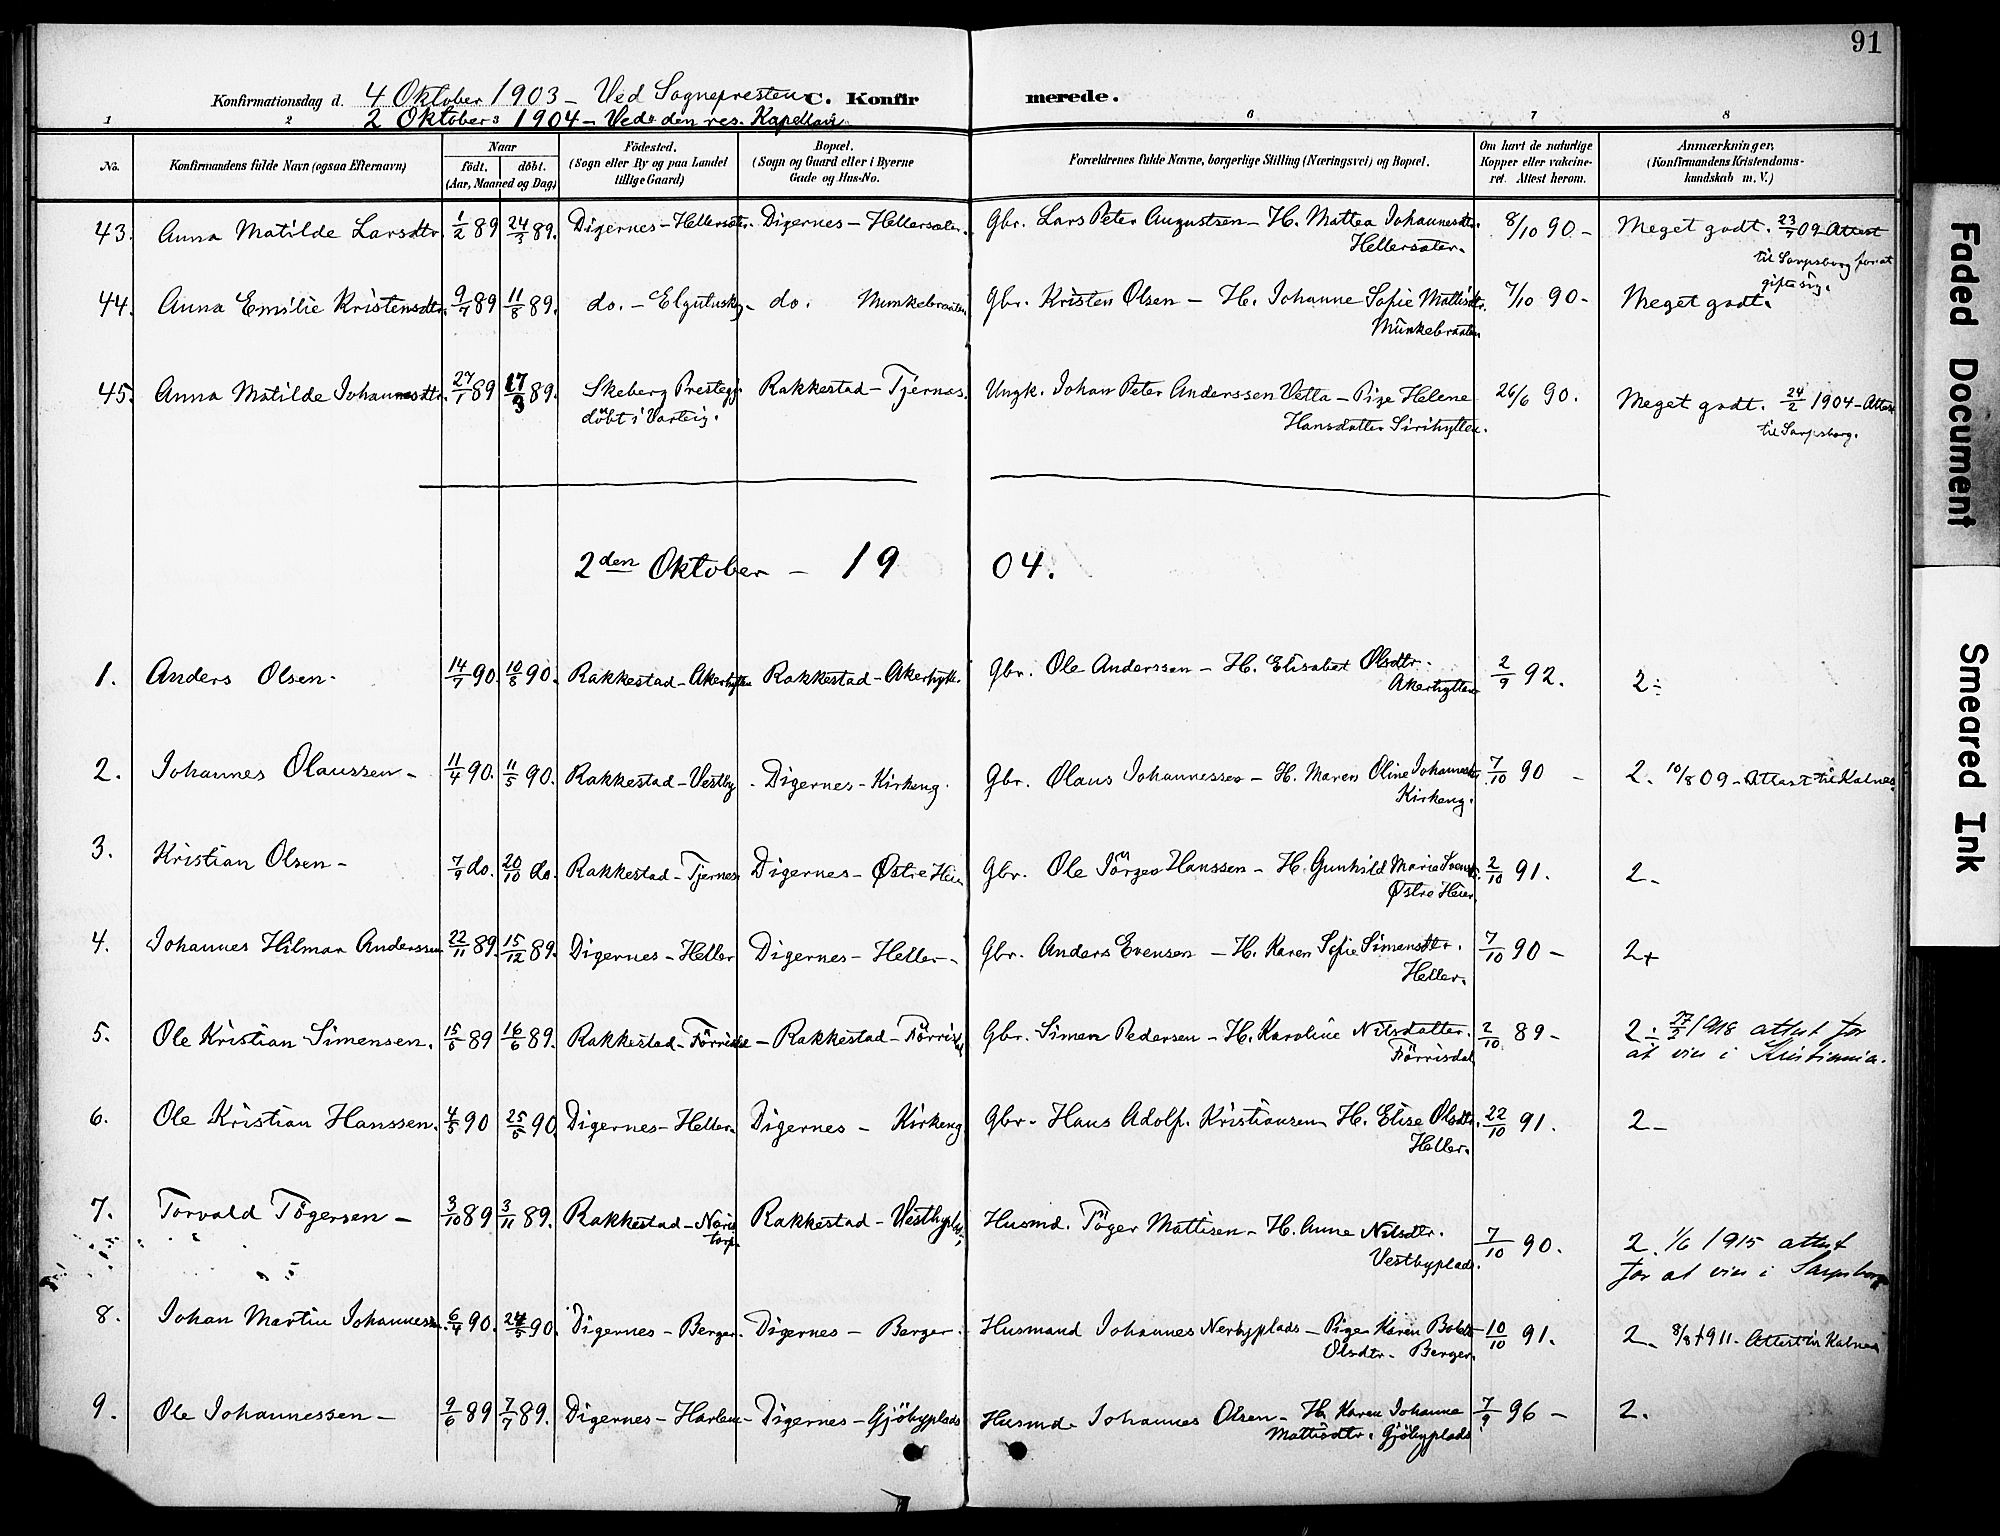 91
Konfirmationsdag d. 4 Oktober 1903 – Ved Sognepresten C. Konfirmerede.
2 Oktober 1904 – Ved den res. Kapellan
1 2 3 6 7 8
No. Konfirmandens fulde Navn (ogsaa Efternavn) Naar født, døbt. (Aar, Maaned og Dag) Fødested. (Sogn eller By og paa Landet tillige Gaard) Bopæl. (Sogn og Gaard eller i Byerne Gade og Hus-No. Forældrenes fulde Navne, borgerlige Stilling (Næringsvei) og Bopæl. Om havt de naturlige Kopper eller vakcineret. Attest herom. Anmærkninger. (Konfirmandens Kristendomskundskab m. V.)
43. Anna Matilde Larsdtr. 1/2 89 24/3 89. Digernes – Hellersæter. Digernes – Hellersæter. Gbr. Lars Peter Augustsen – H. Mattea Johannesdtr. 8/10 90 – Meget godt. 23/7 09 Attest
Hellersæter. til Sarpsborg for at
gifte sig.
44. Anna Emilie Kristensdtr. 9/7 89 11/8 89. do. – do. Munkebraaten Gbr. Kristen Olsen – H. Johanne Sofie Mattisdtr. 7/10 90 – Meget godt.
Munkebraaten
45. Anna Matilde Johannesdtr. 27/1 89 17/3 89. Skeberg Prestegj. Rakkestad – Tjernes. Ungk. Johan Peter Anderssen Vetla – Pige Helene 26/6 90. Meget godt. 24/2 1904 – Attest
döbt i Varteig. Hansdatter Sirihytten. til Sarpsborg.
2den Oktober – 1904.
1. Anders Olsen – 14/7 90. 10/8 90. Rakkestad – Akerhytten Rakkestad – Akerhytt. Gbr. Ole Anderssen – H. Elisabet Olsdtr. 2/9 92. 2 ÷
Akerhytten
2. Johannes Olaussen – 11/4 90. 11/5 90. Rakkestad – Vestby Digernes – Kirkeng. Gbr. Olaus Johannessen – H. Maren Oline Johannesdtr. 7/10 90 – 2. 10/8 09 – Attest til Kalnes
Kirkeng.
3. Kristian Olsen – 7/9 do. 20/10 do. Rakkestad – Tjernes Digernes – Østre Heier Gbr. Ole Jörgen Hanssen – H. Gunhild Marie Svensdtr. 2/10 91. 2 –
Østre Heier.
4. Johannes Hilmar Anderssen 22/11 89. 15/12 89. Digernes – Heller Digernes – Heller – Gbr. Anders Evensen – H. Karen Sofie Simensdtr. 7/10 90 – 2+
Heller.
5. Ole Kristian Simensen. 15/5 89 16/6 89. Rakkestad – Förrisdal – Rakkestad – Förrisdal Gbr. Simen Pedersen – H. Karoline Nilsdatter. 2/10 89 – 2 ÷ 1918 attest for
Förrisdal. at vies i Kristiania.
6. Ole Kristian Hanssen. 4/5 90 25/5 90. Digernes – Heller. Digernes – Kirkeng Gbr. Hans Adolf Kristiansen H. Elise Olsdtr. 22/10 91. 2 –
Heller.
7. Torvald Tögersen – 3/10 89 3/11 89. Rakkestad – Rakkestad – Vestbyplds. Husmd. Töger Mattisen – H. Anne Nilsdtr. 7/10 90. 2. 1/6 1915 attest
torp. Vestbyplads. for at vies i Sarpsborg
8. Johan Martin Johannessen. 6/4 90. 24/5 90. Digernes – Berger. Digernes – Berger. Husmand Johannes Nerbyplads – Pige Karen 10/10 91. 2 – 8/8 1911 – Attest til Kalnes
Olsdtr. Berger.
9. Ole Johannessen – 9/6 89 7/7 89. Digernes – Digernes – Gjöbyplads Husmd. Johannes Olsen – H. Karen Johanne 7/9 96 – 2.
Mattisdtr. Gjöbyplads
Faded Document
Smeared Ink